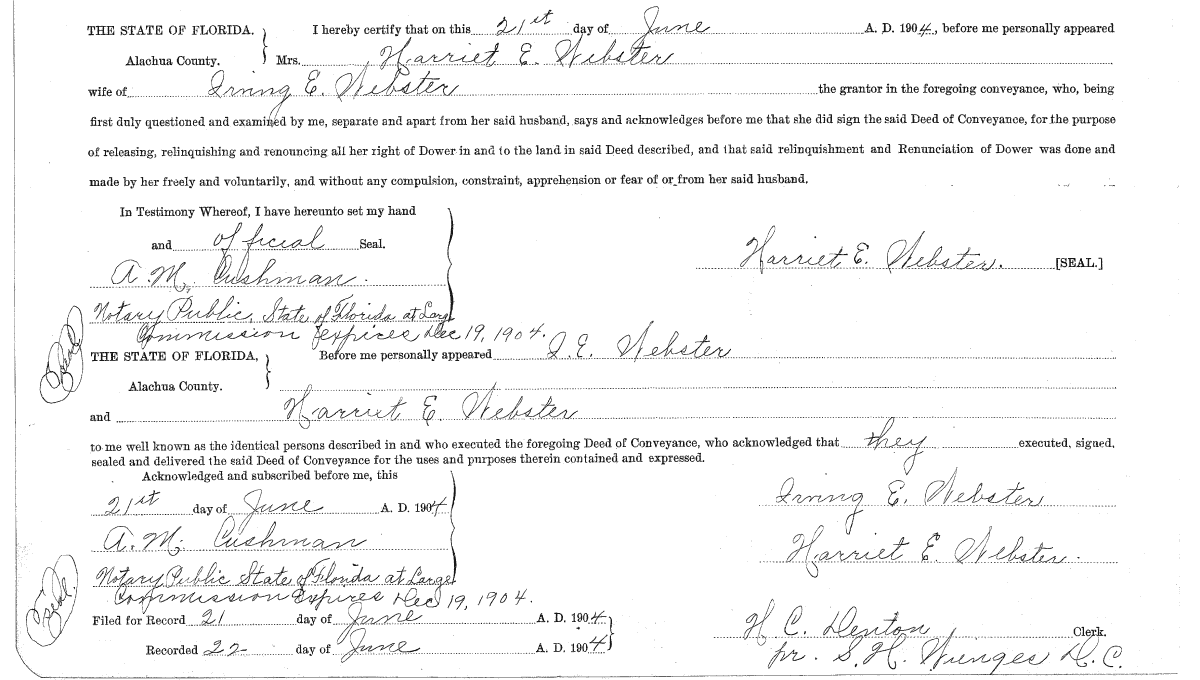 THE STATE OF FLORIDA. } I hereby certify that on this 21st day of June A. D. 1904, before me personally appeared
Alachua County. Mrs. Harriet E. Webster
wife of Irving E. Webster the grantor in the foregoing conveyance, who, being
first duly questioned and examined by me, separate and apart from her said husband, says and acknowledges before me that she did sign the said Deed of Conveyance, for the purpose
of releasing, relinquishing and renouncing all her right of Dower in and to the land in said Deed described, and that said relinquishment and Renunciation of Dower was done and
made by her freely and voluntarily, and without any compulsion, constraint, apprehension or fear of or from her said husband.
In Testimony Whereof, I have hereunto set my hand
and official Seal.
Harriet E. Webster. [SEAL.]
A. M. Cushman.
Notary Public, State of Florida at Large
Commission expires Dec 19, 1904.
Seal
THE STATE OF FLORIDA, } Before me personally appeared I. E. Webster
Alachua County.
and Harriet E. Webster
to me well known as the identical persons described in and who executed the foregoing Deed of Conveyance, who acknowledged that they executed, signed,
sealed and delivered the said Deed of Conveyance for the uses and purposes therein contained and expressed.
Acknowledged and subscribed before me, this
21st day of June A. D. 1904
Irving E. Webster
A. M. Cushman
Harriet E. Webster.
Notary Public State of Florida at Large
Commission Expires Dec 19, 1904.
Seal.
Filed for Record 21 day of June A. D. 1904
H. C. Denton Clerk.
Recorded 22 day of June A. D. 1904
pr. S. H. Wienges D. C.